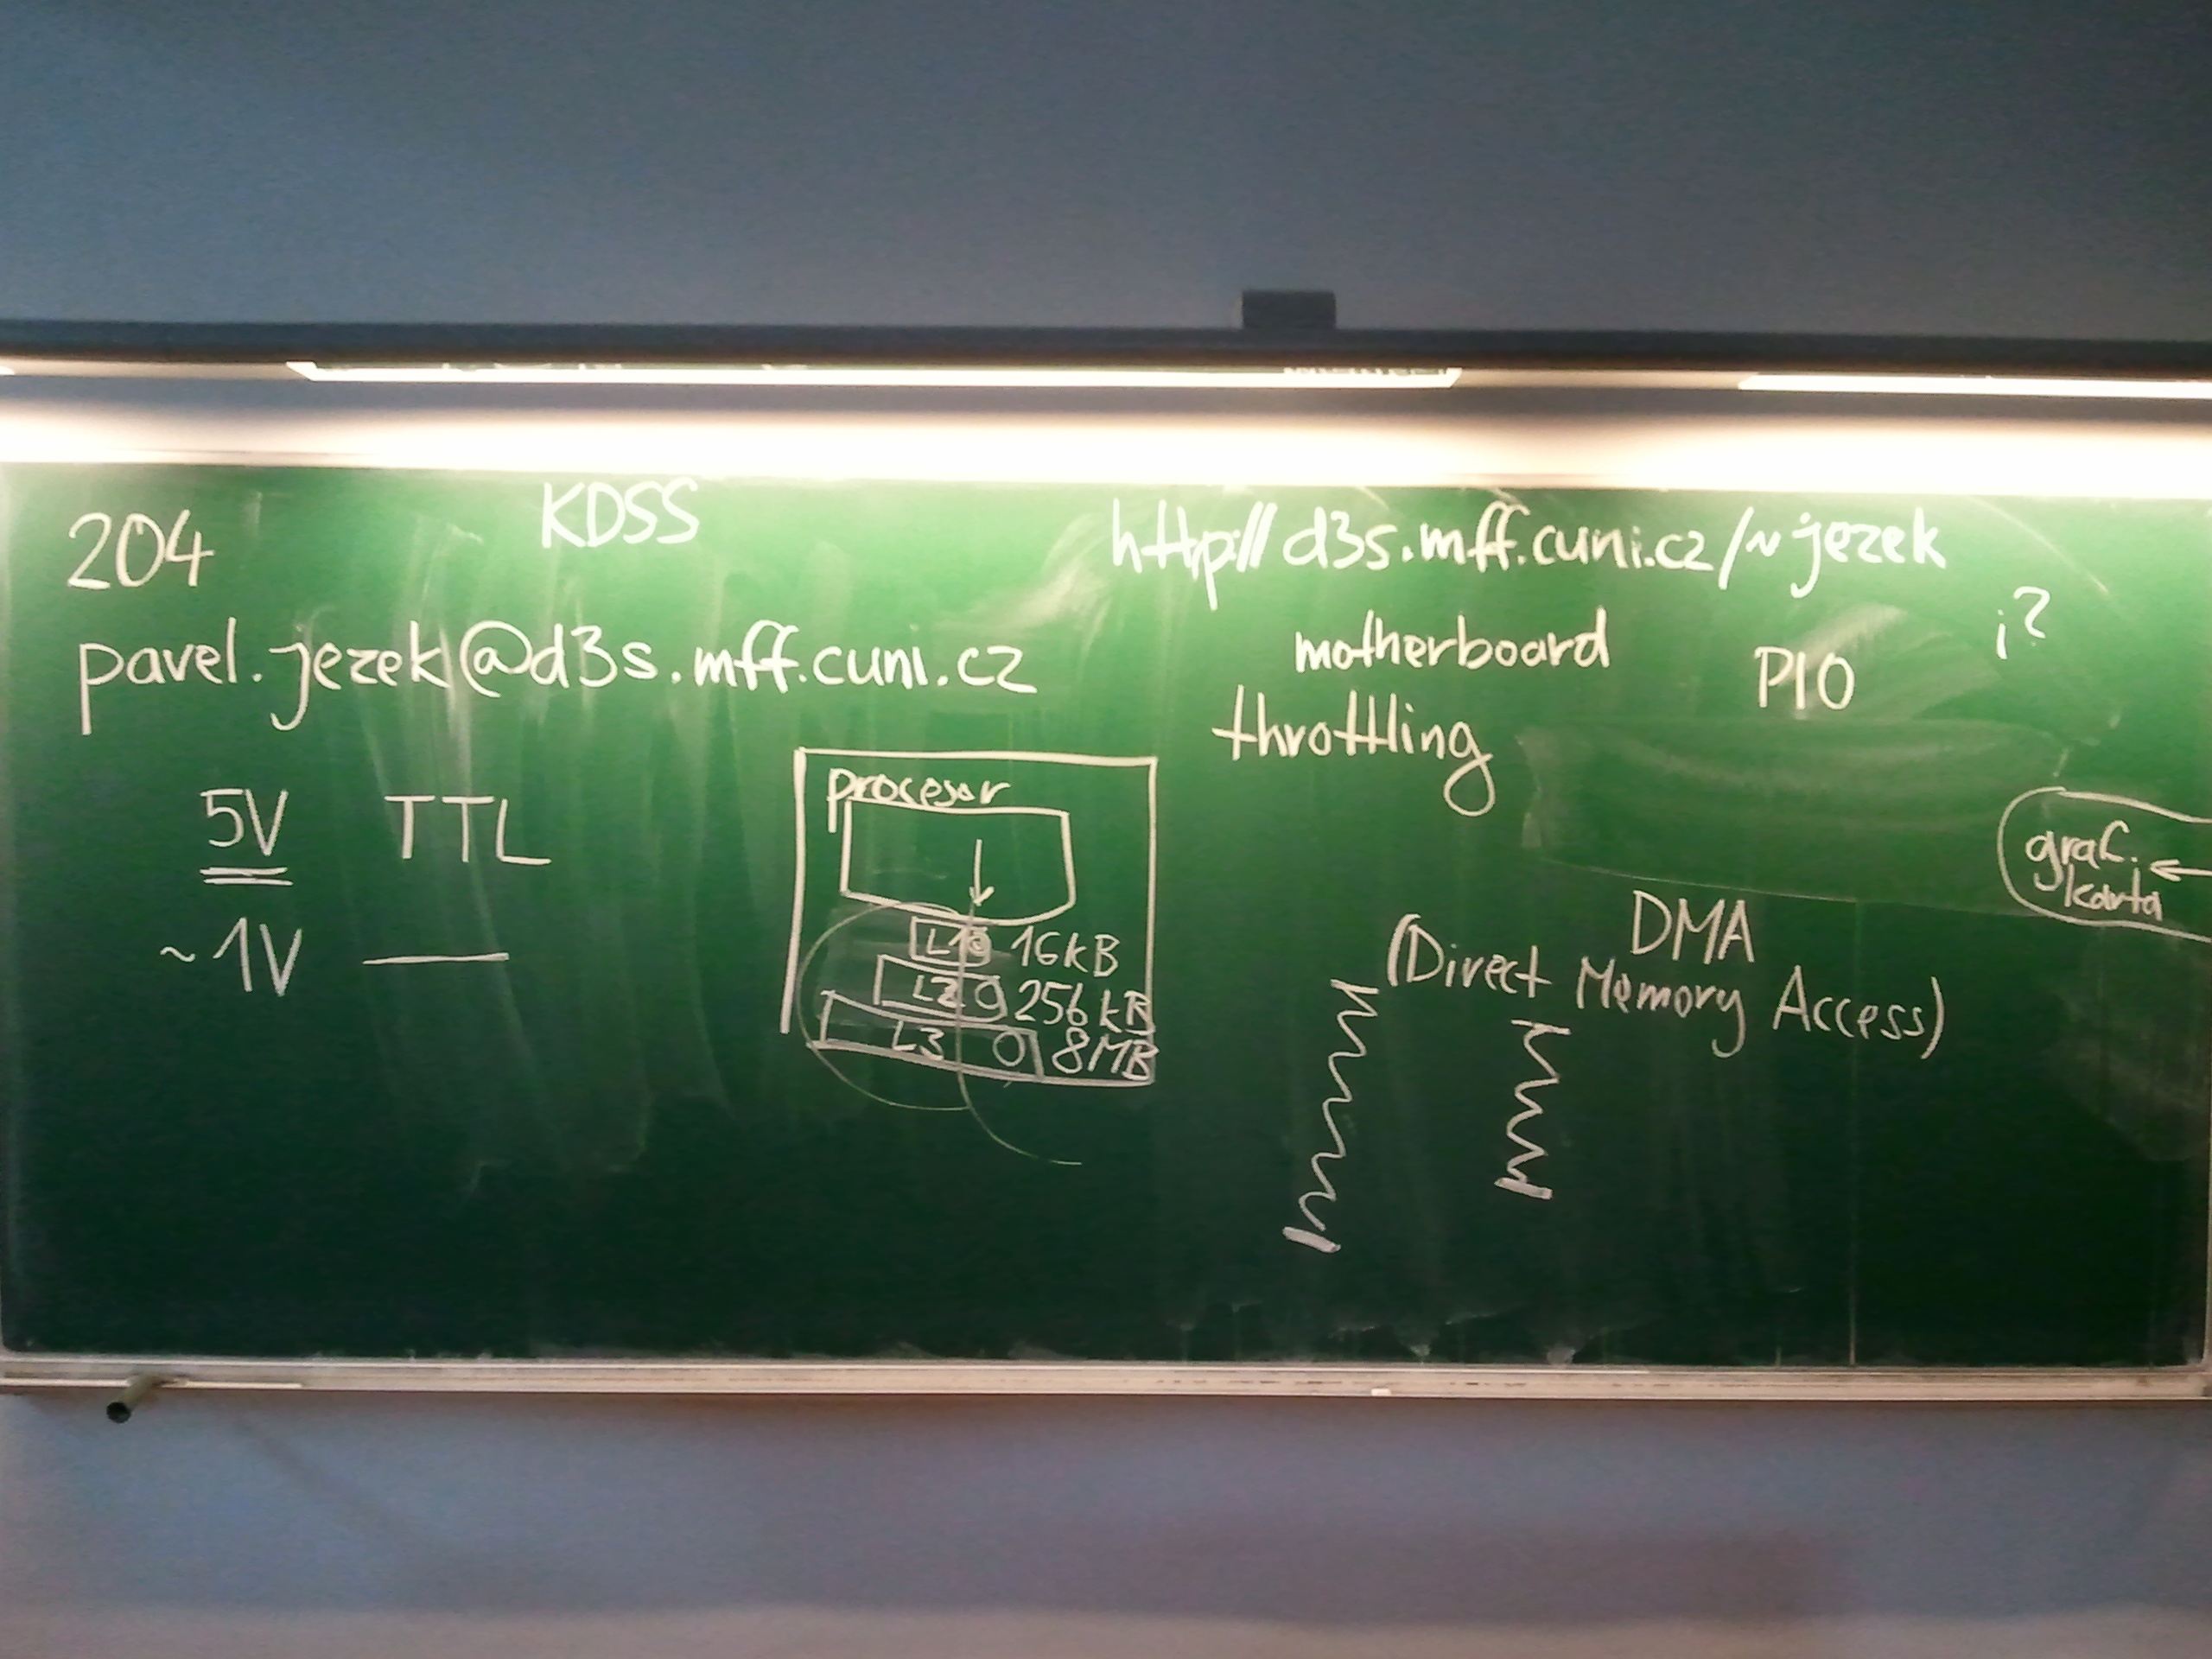 204
KDSS
http://d3s.mff.cuni.cz/~jezek
pavel.jezek@d3s.mff.cuni.cz
motherboard
PIO
i?
throttling
5V TTL
~1V
procesor
L1 16kB
L2 256kB
L3 8MB
graf.
karta
DMA
(Direct Memory Access)